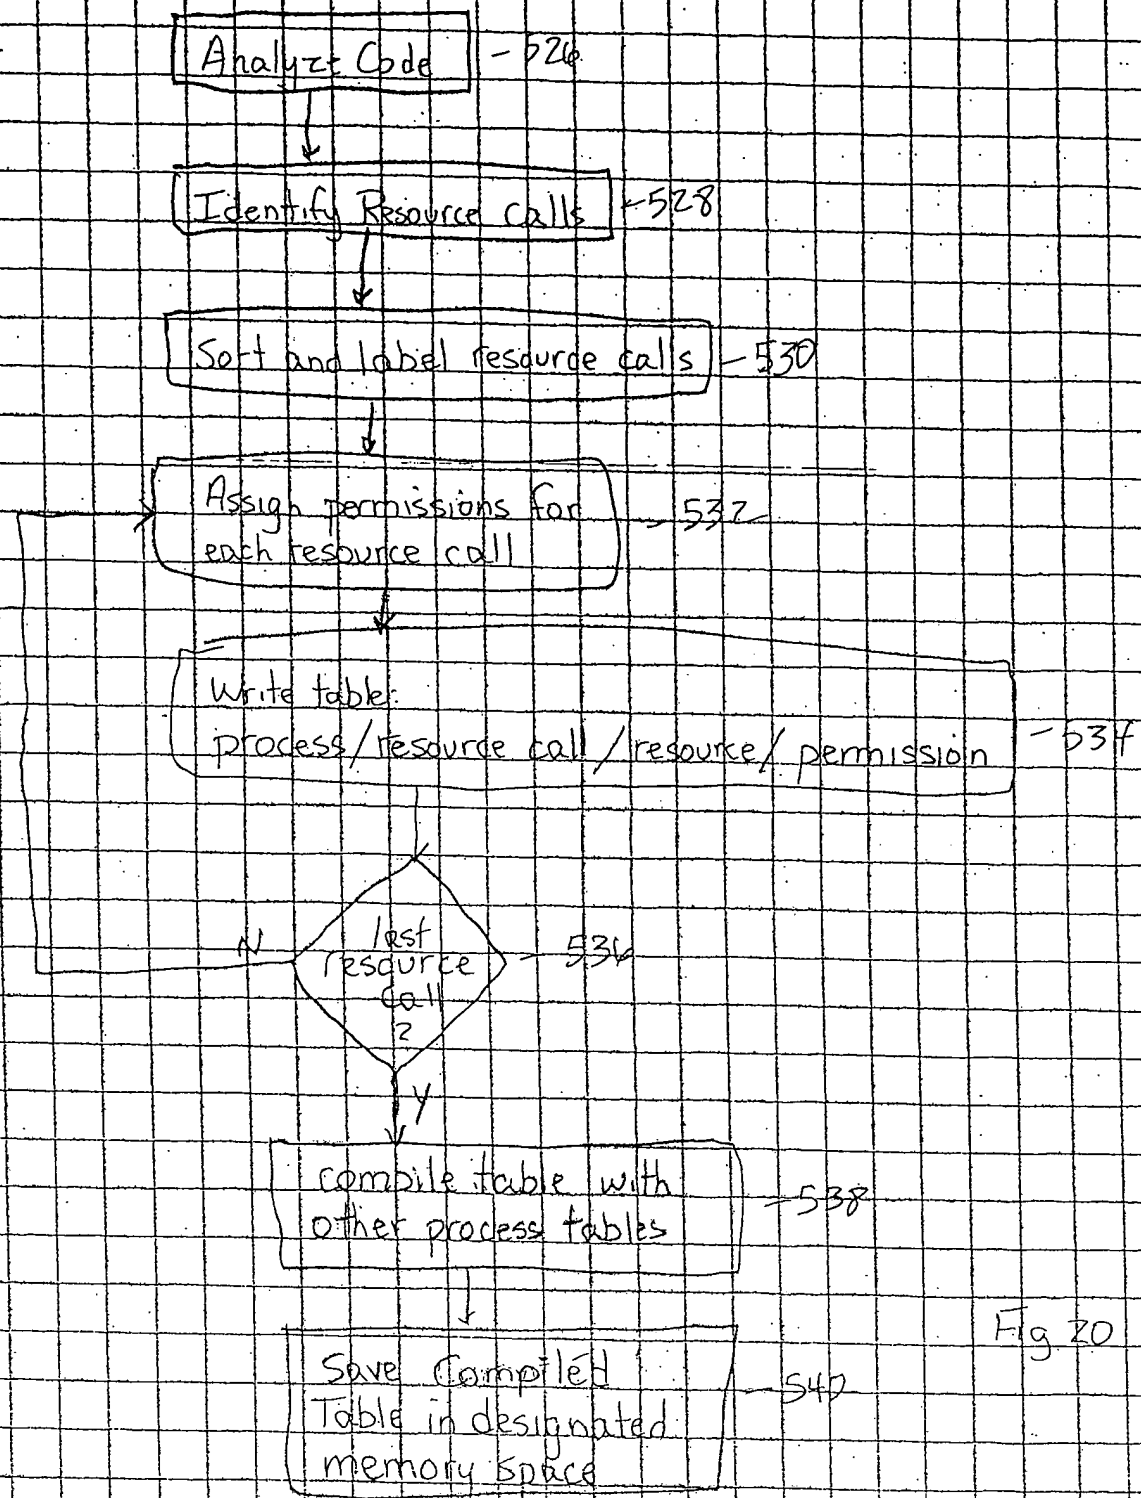 Analyze Code - 526
Identify Resource Calls - 528
Sort and label resource calls - 530
Assign permissions for - 532
each resource call
Write table:
process/resource call/resource/permission - 534
last
N
resource - 536
call
?
Y
compile table with
other process tables - 538
Fig 20
Save Compiled
Table in designated - 540
memory space